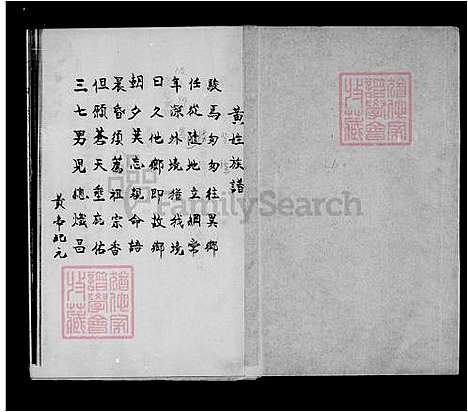 黃姓族譜
駿馬匆匆往異鄉
任從隨地立綱常
年深外境猶我境
日久他鄉即故鄉
朝夕莫忘親命語
晨昏須薦祖宗香
但願蒼天垂庇佑
三七男兒總熾昌
黃帝紀元
FamilySearch